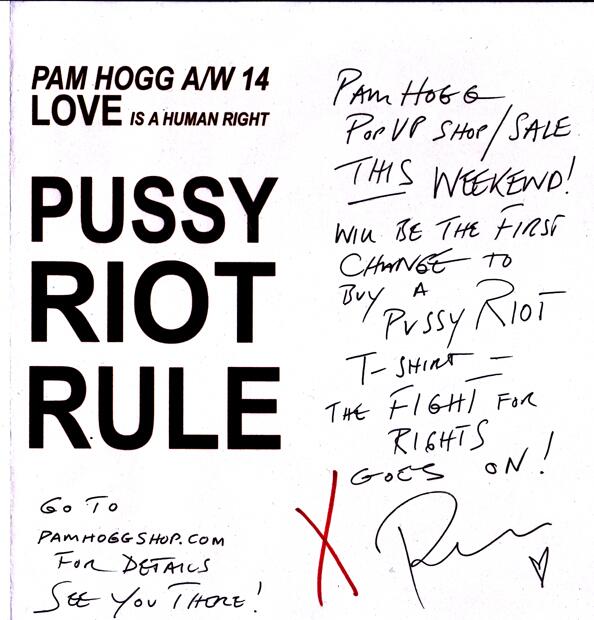 PAM HOGG A/W 14
LOVE IS A HUMAN RIGHT
PUSSY
RIOT
RULE
PAM HOGG
POP UP SHOP/SALE
THIS WEEKEND!
WILL BE THE FIRST
CHANGE TO
BUY A
PUSSY RIOT
T-SHIRT –
THE FIGHT FOR
RIGHTS
GOES ON!
X Pam
GO TO
PAMHOGGSHOP.COM
FOR DETAILS
SEE YOU THERE!